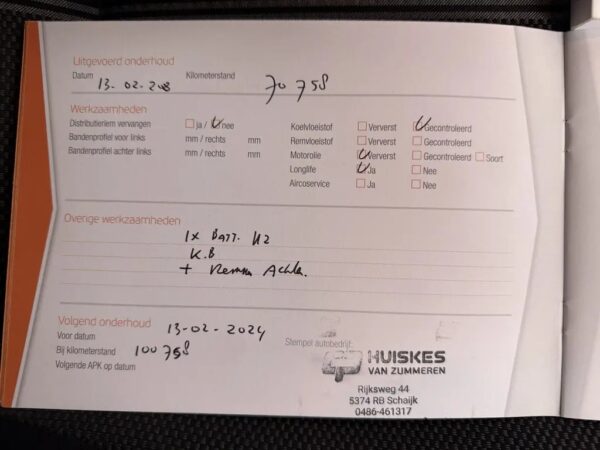 Uitgevoerd onderhoud
Datum 13-02-2023 Kilometerstand 70 758
Werkzaamheden
Distributieriem vervangen ja / nee
Bandenprofiel voor links mm / rechts mm
Bandenprofiel achter links mm / rechts mm
Koelvloeistof Ververst Gecontroleerd
Remvloeistof Ververst Gecontroleerd
Motorolie Ververst Gecontroleerd Soort
Longlife Ja Nee
Aircoservice Ja Nee
Overige werkzaamheden
1x Batt.
K.B
+ Remmen Achter.
Volgend onderhoud
Voor datum 13-02-2024
Bij kilometerstand 100 758
Volgende APK op datum
Stempel autobedrijf:
HUISKES
VAN ZUMMEREN
Rijksweg 44
5374 RB Schaijk
0486-461317